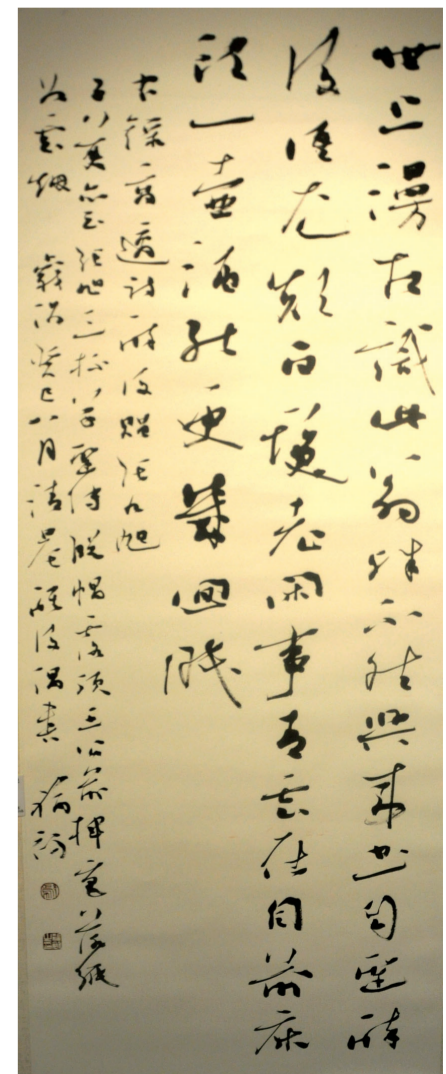 世上漫相識此翁殊不然興來書自聖醉
後語尤顛白髮老閑事青雲在目前床
頭一壺酒能更幾回眠
右錄高適詩醉後贈張九旭
子美亦云張旭三杯草聖傳脫帽露頂王公前揮毫落紙
如雲烟 歲次癸巳八月清晨醉後偶書